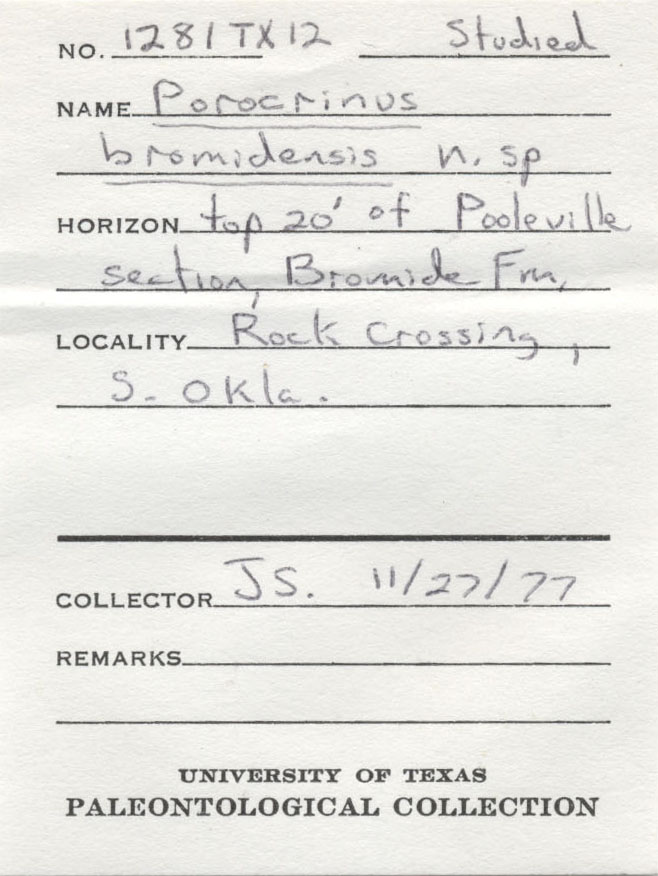 NO. 1281TX12 Studied
NAME Porocrinus
bromidensis n. sp
HORIZON top 20' of Pooleville
section, Bromide Fm,
LOCALITY Rock Crossing,
S. Okla.
COLLECTOR JS. 11/27/77
REMARKS
UNIVERSITY OF TEXAS
PALEONTOLOGICAL COLLECTION